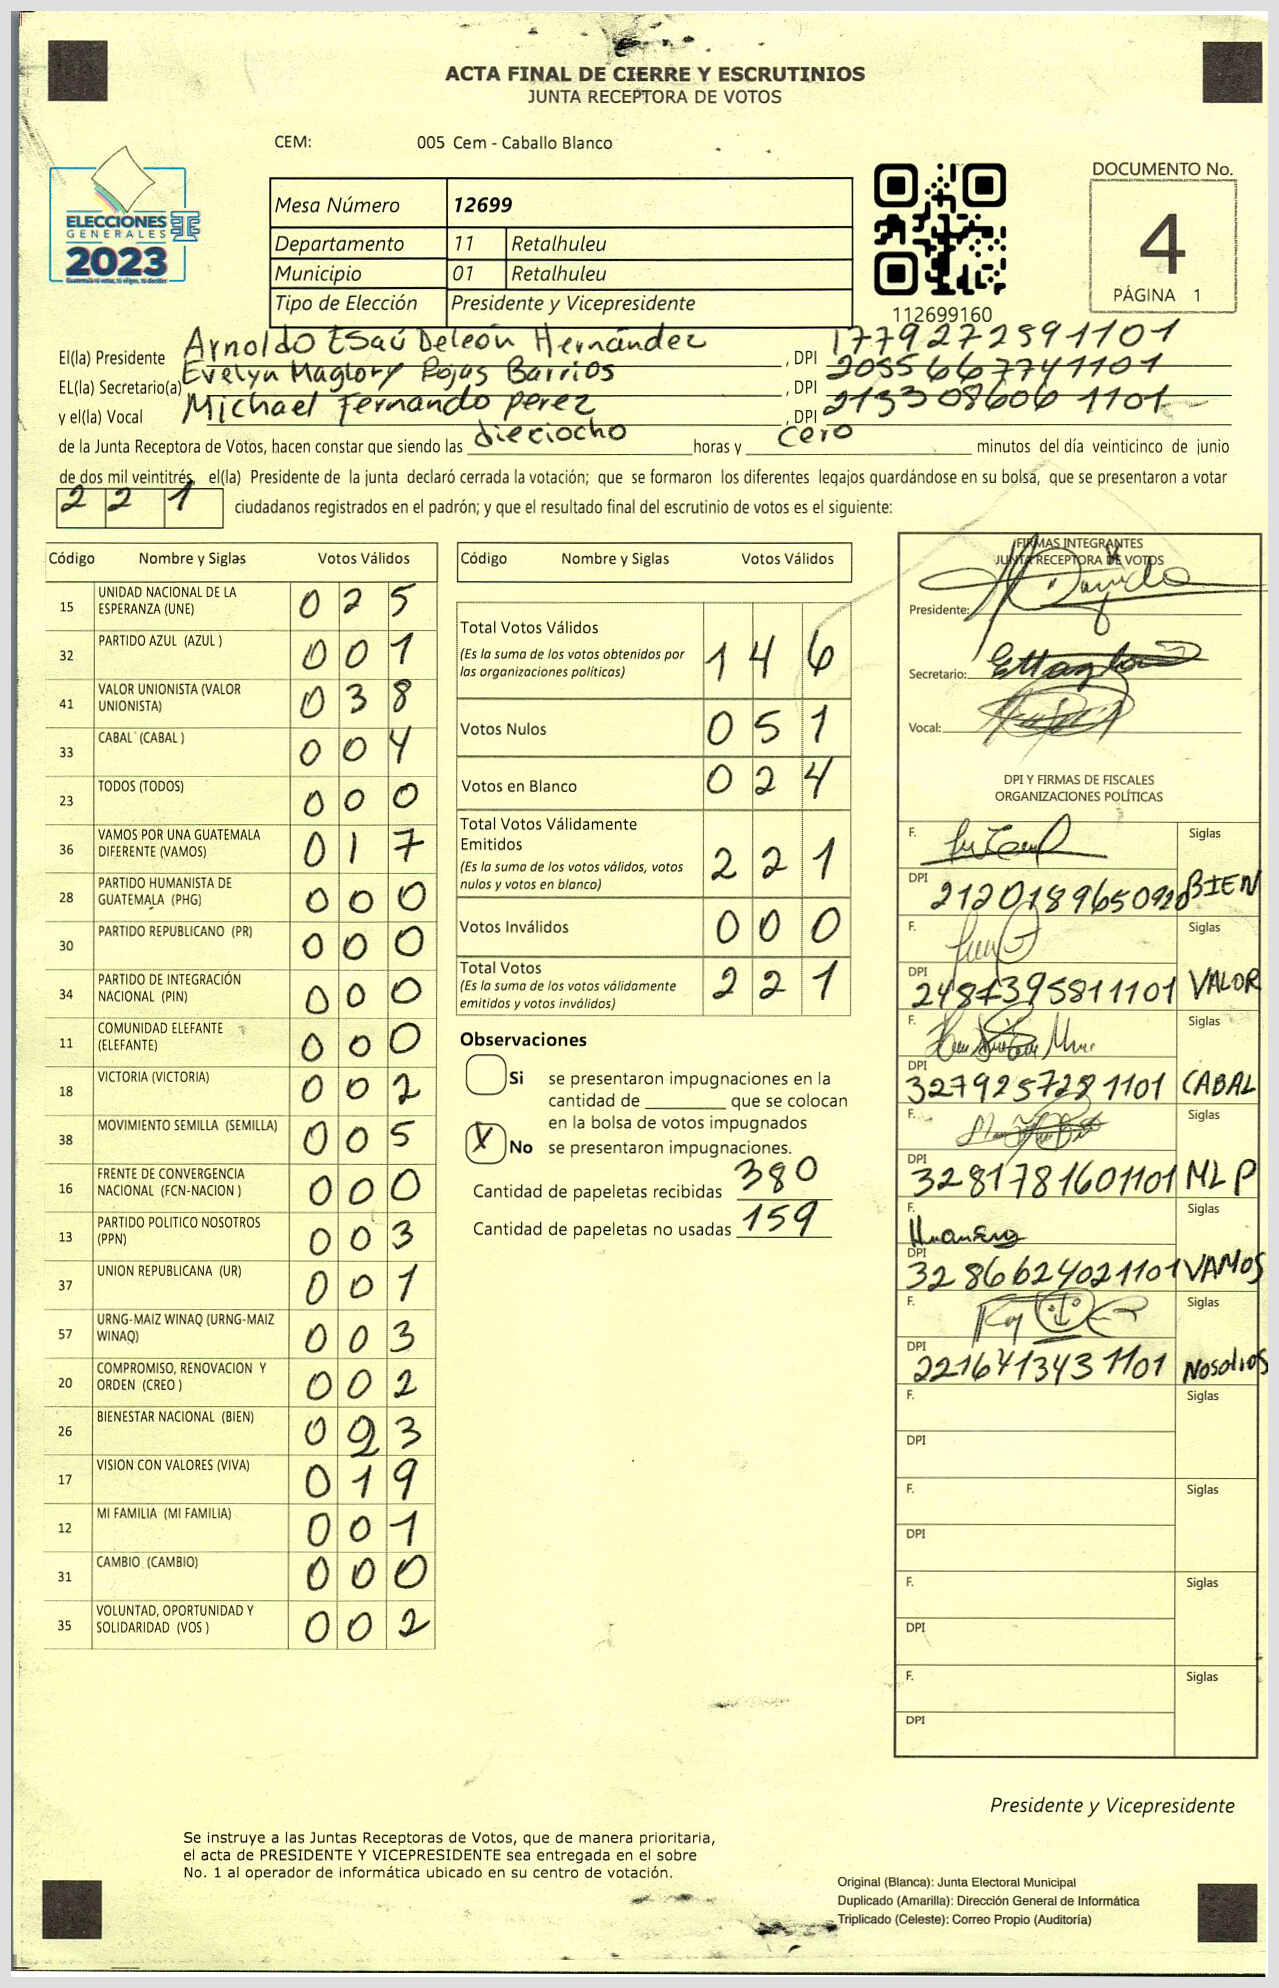 ACTA FINAL DE CIERRE Y ESCRUTINIOS
JUNTA RECEPTORA DE VOTOS
CEM: 005 Cem - Caballo Blanco
ELECCIONES
GENERALES
2023
Mesa Número 12699
Departamento 11 Retalhuleu
Municipio 01 Retalhuleu
Tipo de Elección Presidente y Vicepresidente
112699160
DOCUMENTO No.
4
PÁGINA 1
El(la) Presidente Arnoldo Esaú Deleón Hernández, DPI 1779272891101
EL(la) Secretario(a) Evelyn Maglory Rojas Barrios, DPI 2055667741101
y el(la) Vocal Michael Fernando perez, DPI 2133086061101
de la Junta Receptora de Votos, hacen constar que siendo las dieciocho horas y cero minutos del día veinticinco de junio
de dos mil veintitrés, el(la) Presidente de la junta declaró cerrada la votación; que se formaron los diferentes legajos guardándose en su bolsa, que se presentaron a votar
221 ciudadanos registrados en el padrón; y que el resultado final del escrutinio de votos es el siguiente:
Código Nombre y Siglas Votos Válidos
15 UNIDAD NACIONAL DE LA ESPERANZA (UNE) 025
32 PARTIDO AZUL (AZUL ) 001
41 VALOR UNIONISTA (VALOR UNIONISTA) 038
33 CABAL (CABAL ) 004
23 TODOS (TODOS) 000
36 VAMOS POR UNA GUATEMALA DIFERENTE (VAMOS) 017
28 PARTIDO HUMANISTA DE GUATEMALA (PHG) 000
30 PARTIDO REPUBLICANO (PR) 000
34 PARTIDO DE INTEGRACIÓN NACIONAL (PIN) 000
11 COMUNIDAD ELEFANTE (ELEFANTE) 000
18 VICTORIA (VICTORIA) 002
38 MOVIMIENTO SEMILLA (SEMILLA) 005
16 FRENTE DE CONVERGENCIA NACIONAL (FCN-NACION ) 000
13 PARTIDO POLITICO NOSOTROS (PPN) 003
37 UNION REPUBLICANA (UR) 001
57 URNG-MAIZ WINAQ (URNG-MAIZ WINAQ) 003
20 COMPROMISO, RENOVACION Y ORDEN (CREO ) 002
26 BIENESTAR NACIONAL (BIEN) 023
17 VISION CON VALORES (VIVA) 019
12 MI FAMILIA (MI FAMILIA) 001
31 CAMBIO (CAMBIO) 000
35 VOLUNTAD, OPORTUNIDAD Y SOLIDARIDAD (VOS ) 002
Código Nombre y Siglas Votos Válidos
Total Votos Válidos
(Es la suma de los votos obtenidos por
las organizaciones políticas) 146
Votos Nulos 051
Votos en Blanco 024
Total Votos Válidamente
Emitidos
(Es la suma de los votos válidos, votos
nulos y votos en blanco) 221
Votos Inválidos 000
Total Votos
(Es la suma de los votos válidamente
emitidos y votos inválidos) 221
Observaciones
Si se presentaron impugnaciones en la
cantidad de ________ que se colocan
en la bolsa de votos impugnados
X No se presentaron impugnaciones.
Cantidad de papeletas recibidas 380
Cantidad de papeletas no usadas 159
FIRMAS INTEGRANTES
JUNTA RECEPTORA DE VOTOS
Presidente:
Secretario:
Vocal:
DPI Y FIRMAS DE FISCALES
ORGANIZACIONES POLÍTICAS
F. Siglas
DPI 2120189650920 BIEN
F. Siglas
DPI 2487395811101 VALOR
F. Siglas
DPI 3279257281101 CABAL
F. Siglas
DPI 3281781601101 MLP
F. Siglas
DPI 3286624021101 VAMOS
F. Siglas
DPI 2216413431101 NOSOTROS
F. Siglas
DPI
F. Siglas
DPI
F. Siglas
DPI
F. Siglas
DPI
Presidente y Vicepresidente
Se instruye a las Juntas Receptoras de Votos, que de manera prioritaria,
el acta de PRESIDENTE Y VICEPRESIDENTE sea entregada en el sobre
No. 1 al operador de informática ubicado en su centro de votación.
Original (Blanca): Junta Electoral Municipal
Duplicado (Amarilla): Dirección General de Informática
Triplicado (Celeste): Correo Propio (Auditoría)